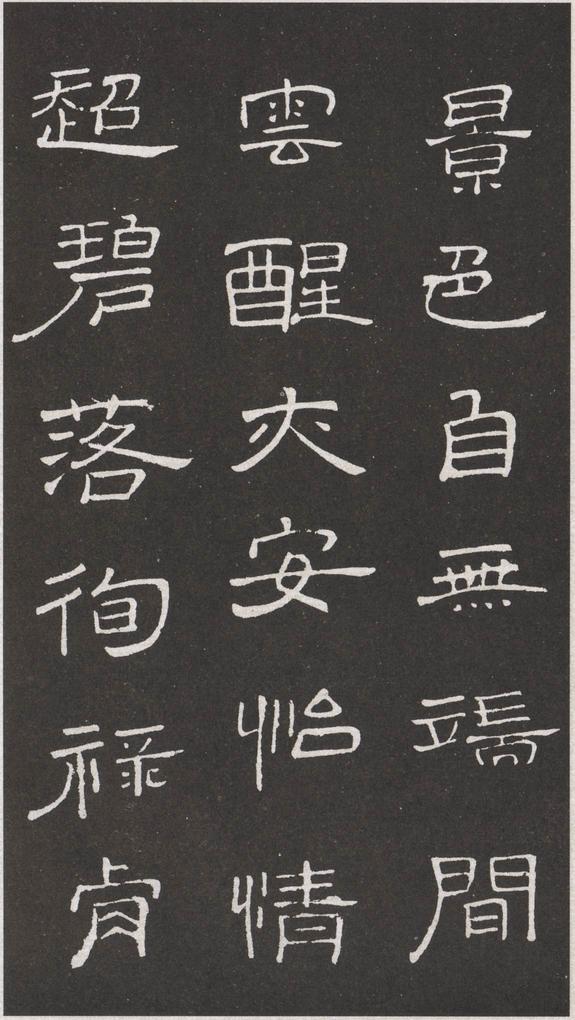 景色自無端間
雲醒安怡情
超碧落徇祿肯